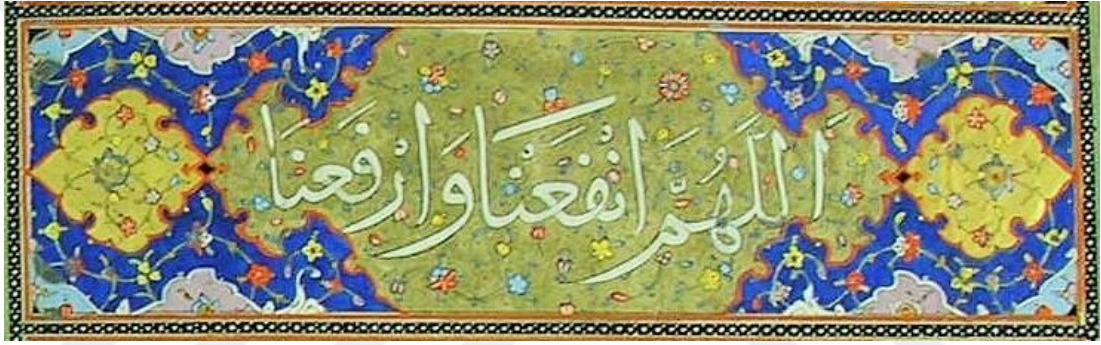 اَللّٰهُمَّ انْفَعْنَا وَارْفَعْنَا